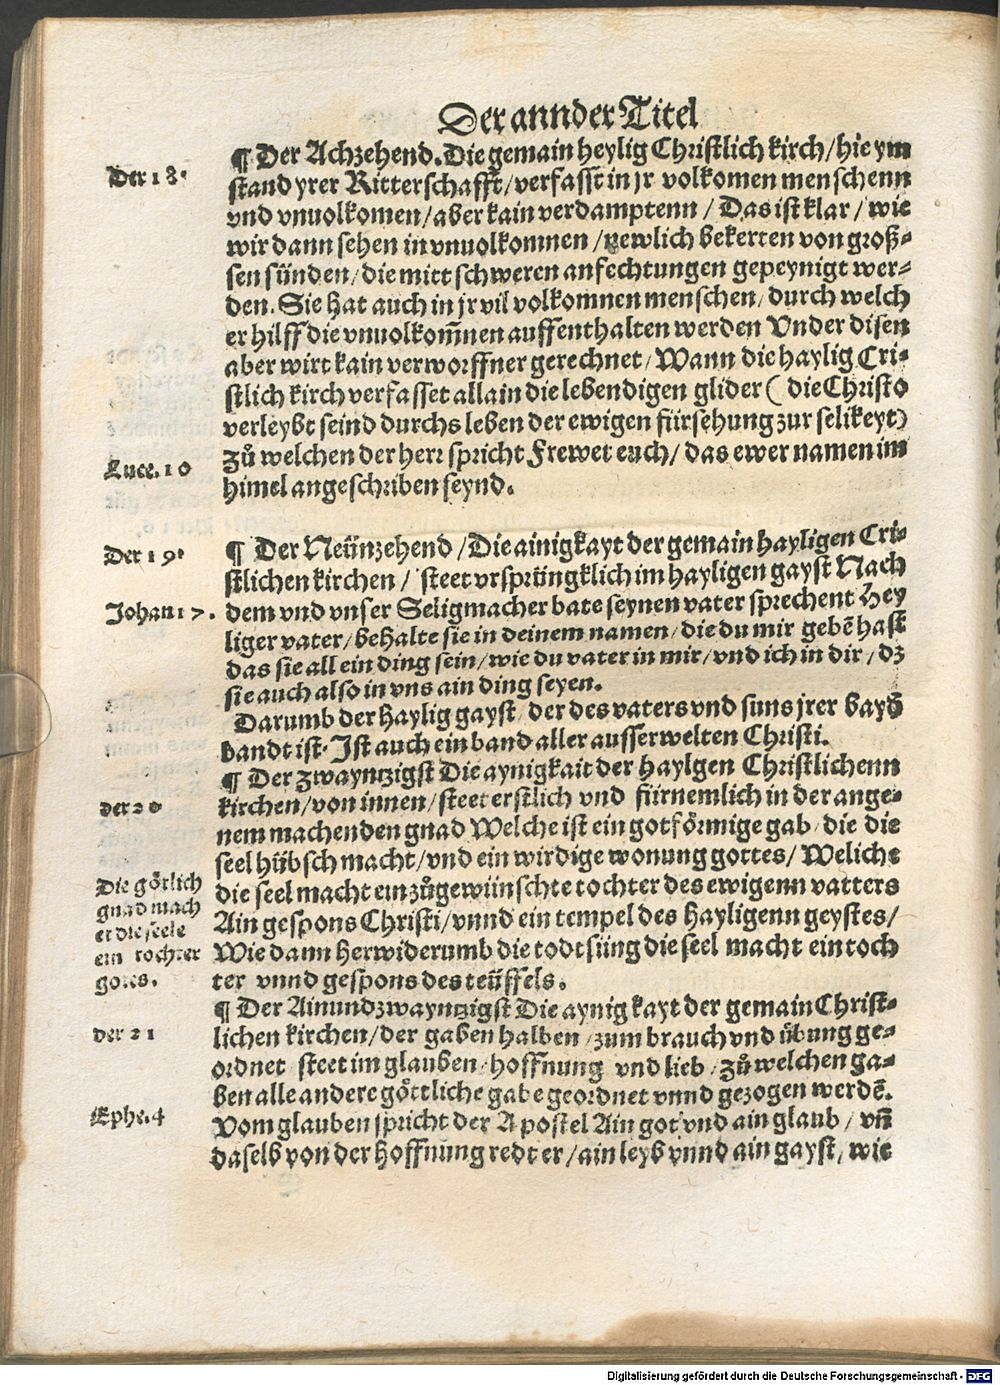 Der annder Titel
Der 18.
¶ Der Achzehend. Die gemain heylig Christlich kirch/ hie ym
stand yrer Ritterschafft/ verfasst in jr volkomen menschenn
vnd vnuolkomen/ aber kain verdamptenn/ Das ist klar/ wie
wir dann sehen in vnuolkommen/ newlich bekerten von gross-
sen sünden/ die mitt schweren anfechtungen gepeynigt wer-
den. Sie hat auch in jr vil volkomnen menschen/ durch welch
er hilff die vnuolkom̃nen auffenthalten werden Vnder disen
aber wirt kain verworffner gerechnet/ Wann die haylig Cri-
stlich kirch verfasset allain die lebendigen glider ( die Christo
verleybt seind durchs leben der ewigen fürsehung zur selikeyt)
Luce. 10
zů welchen der herr spricht Frewet euch/ das ewer namen im
himel angeschriben seynd.
Der 19.
¶ Der Neünzehend/ Die ainigkayt der gemain hayligen Cri-
stlichen kirchen/ steet vrsprüngklich im hayligen gayst Nach
Johan 17.
dem vnd vnser Seligmacher bate seynen vater sprechent Hey
liger vater/ behalte sie in deinem namen/ die du mir gebẽ hast
das sie all ein ding sein/ wie du vater in mir/ vnd ich in dir/ dz
sie auch also in vns ain ding seyen.
Darumb der haylig gayst/ der des vaters vnd suns jrer bayd
bandt ist. Ist auch ein band aller ausserwelten Christi.
¶ Der zwayntzigst Die aynigkait der haylgen Christlichenn
der 20
kirchen/ von innen/ steet erstlich vnd fürnemlich in der ange-
nem machenden gnad Welche ist ein gotförmige gab/ die die
seel hübsch macht/ vnd ein wirdige wonung gottes/ Weliche
Die götlich
gnad mach
et die seele
ein tochter
gotes.
die seel macht ein zůgewünschte tochter des ewigenn vatters
Ain gespons Christi/ vnnd ein tempel des hayligenn geystes/
Wie dann herwiderumb die todtsüng die seel macht ein toch
ter vnnd gespons des teüffels.
¶ Der Ainundzwayntzigst Die aynigkayt der gemain Christ-
der 21
lichen kirchen/ der gaben halben/ zum brauch vnd übung ge-
ordnet steet im glauben/ hoffnung vnd lieb/ zů welchen ga-
ben alle andere göttliche gabe geordnet vnnd gezogen werdẽ.
Ephe. 4
Vom glauben spricht der Apostel Ain got vnd ain glaub/ vñ
daselb von der hoffnung redt er/ ain leyb vnnd ain gayst/ wie
Digitalisierung gefördert durch die Deutsche Forschungsgemeinschaft - DFG